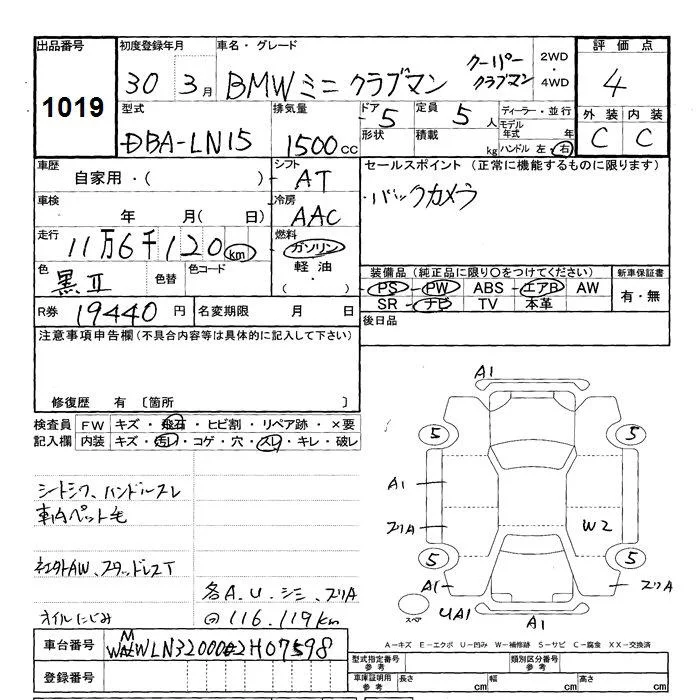 出品番号
1019
初度登録年月
30 3月
車名・グレード
BMWミニ クラブマン クーパー クラブマン
2WD
・
4WD
評価点
4
型式
DBA-LN15
排気量
1500cc
ドア 5
定員 5人
形状
積載 kg
ディーラー・並行
モデル年式 年
ハンドル 左・右
外装 内装
C C
車歴
自家用・( )
シフト
AT
セールスポイント (正常に機能するものに限ります)
・バックカメラ
車検
年 月( 日)
冷房
AAC
走行
11万6千120km
燃料
ガソリン
軽油
・( )
色
黒II
色替
色コード
装備品(純正品に限り○をつけてください)
PS PW ABS エアB AW
SR ナビ TV 本革
新車保証書
有・無
R券 19440円
名変期限 月 日
後日品
注意事項申告欄(不具合内容等は具体的に記入して下さい)
修復歴 有 〔箇所 〕
検査員記入欄
FW キズ・飛石・ヒビ割・リペア跡・×要
内装 キズ・汚レ・コゲ・穴・スレ・キレ・破レ
シートシワ、ハンドルスレ
車内ペット毛
社外AW、スタッドレスT
各A.U.シミ、フリA
オイルにじみ
@116.119km
A1
5 5
A1
フリA
W2
5 5
A1
フリA
スペア
UA1
A1
A-キズ E-エクボ U-凹み W-補修跡 S-サビ C-腐食 XX-交換済
車台番号
登録番号
型式指定番号
参考
類別区分番号
参考
車庫証明用
参考
長さ cm
幅 cm
高さ cm